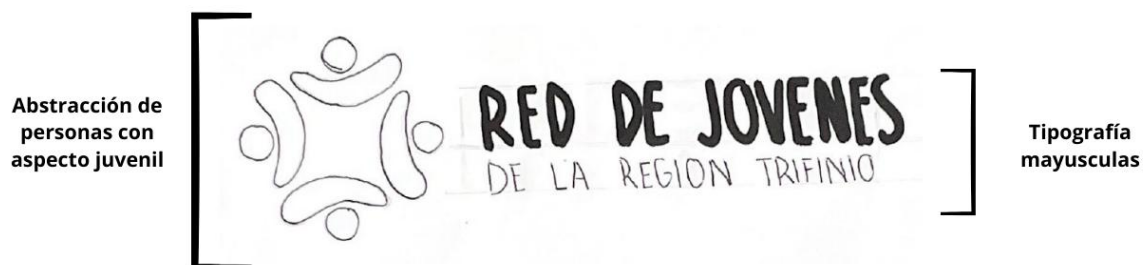 Abstracción de
personas con
aspecto juvenil
RED DE JOVENES
DE LA REGION TRIFINIO
Tipografía
mayusculas